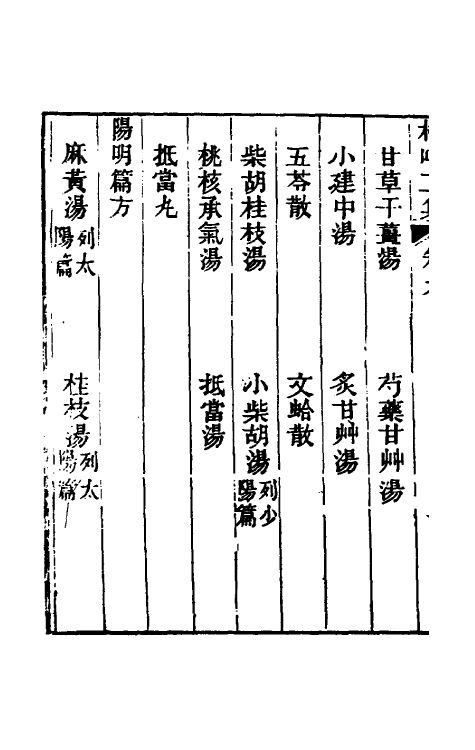 甘草干薑湯　芍藥甘艸湯
小建中湯　炙甘艸湯
五苓散　文蛤散
柴胡桂枝湯　小柴胡湯列少陽篇
桃核承氣湯　抵當湯
抵當丸
陽明篇方
麻黃湯列太陽篇　桂枝湯列太陽篇